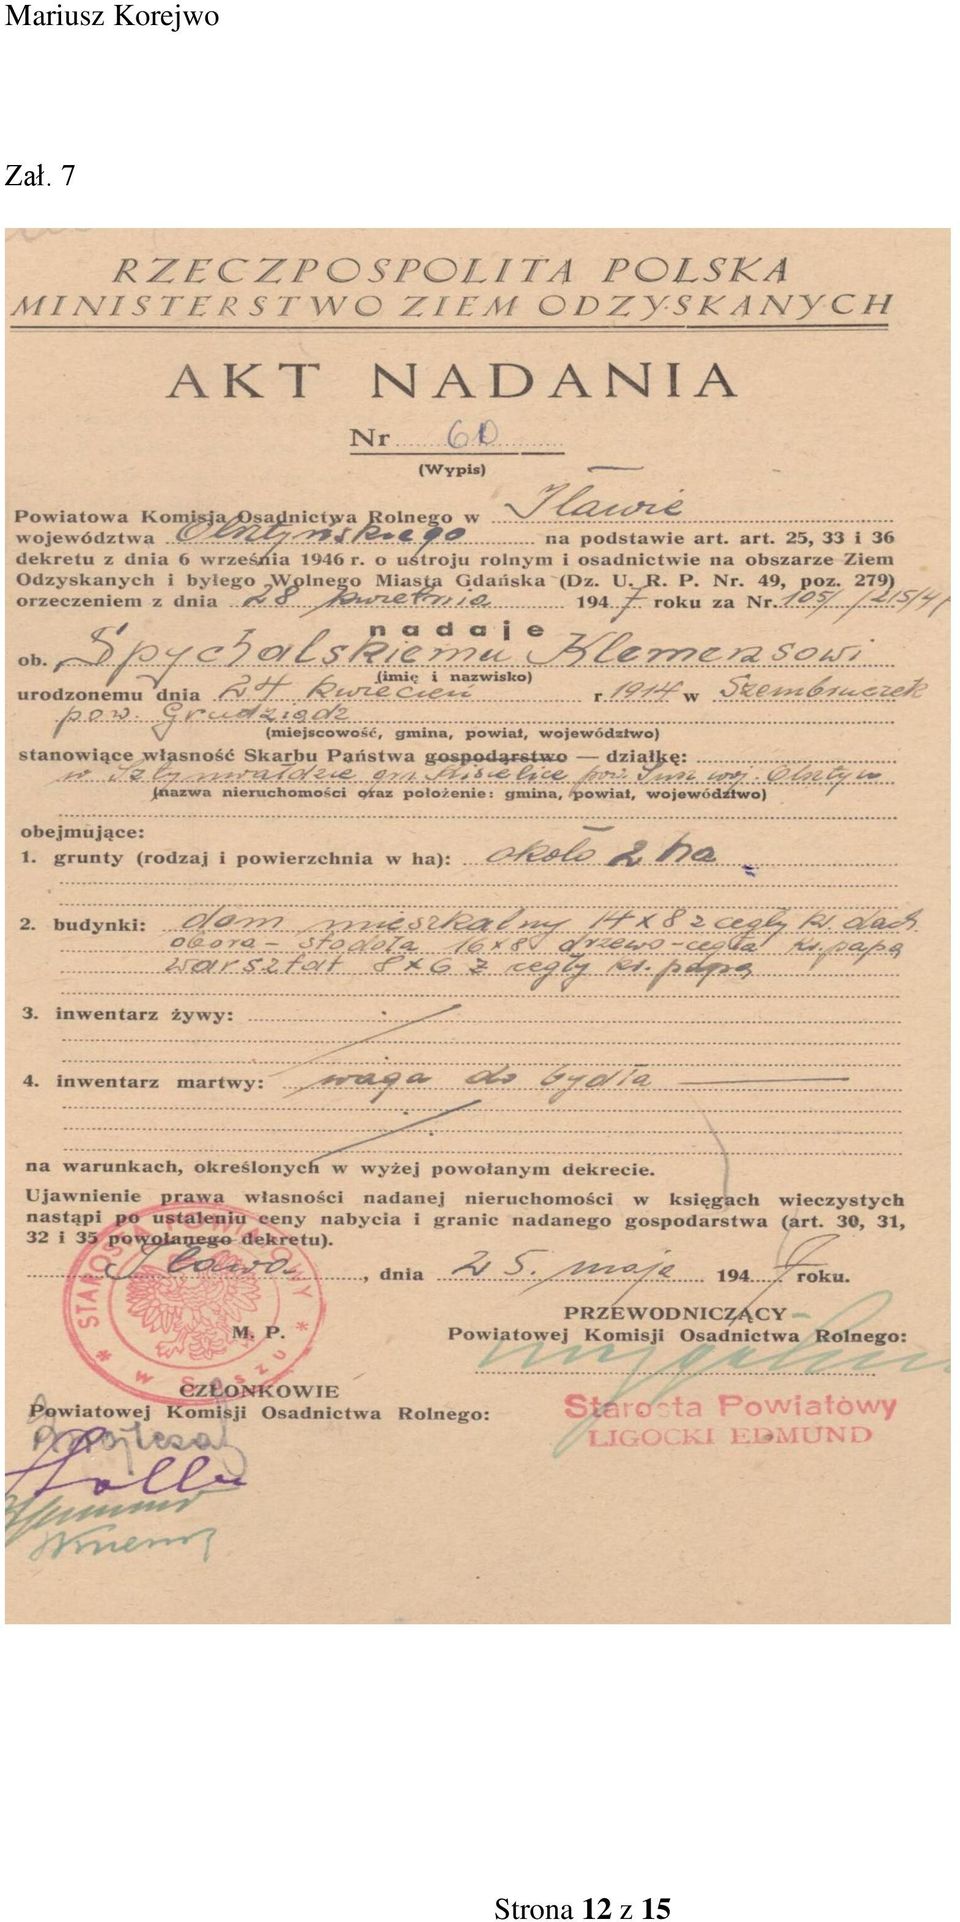 Mariusz Korejwo
Zał. 7
RZECZPOSPOLITA POLSKA
MINISTERSTWO ZIEM ODZYSKANYCH
AKT NADANIA
Nr 60
(Wypis)
Powiatowa Komisja Osadnictwa Rolnego w Iławie
województwa Olsztyńskiego na podstawie art. art. 25, 33 i 36
dekretu z dnia 6 września 1946 r. o ustroju rolnym i osadnictwie na obszarze Ziem
Odzyskanych i byłego Wolnego Miasta Gdańska (Dz. U. R. P. Nr. 49, poz. 279)
orzeczeniem z dnia 28 kwietnia 1947 roku za Nr. 105/
nadaje
ob. Spychalskiemu Klemensowi
(imię i nazwisko)
urodzonemu dnia 24 kwiecień r 1914 w Szembruczek
pow. Grudziądz
(miejscowość, gmina, powiat, województwo)
stanowiące własność Skarbu Państwa gospodarstwo — działkę:
w gm. Kisielice pow. Susz woj. Olsztyn
(nazwa nieruchomości oraz położenie: gmina, powiat, województwo)
obejmujące:
1. grunty (rodzaj i powierzchnia w ha): około 2 ha
2. budynki: dom mieszkalny 14 x 8 z cegły kr. dach
obora - stodoła 16 x 8 drzewo - cegła kr. papą
warsztat 8 x 6 z cegły kr. papą
3. inwentarz żywy:
4. inwentarz martwy: waga do bydła
na warunkach, określonych w wyżej powołanym dekrecie.
Ujawnienie prawa własności nadanej nieruchomości w księgach wieczystych
nastąpi po ustaleniu ceny nabycia i granic nadanego gospodarstwa (art. 30, 31,
32 i 35 powołanego dekretu).
Iława, dnia 25. maja 1947 roku.
STAROSTA POWIATOWY * W SUSZU *
M. P.
PRZEWODNICZĄCY
Powiatowej Komisji Osadnictwa Rolnego:
CZŁONKOWIE
Powiatowej Komisji Osadnictwa Rolnego:
Starosta Powiatowy
LIGOCKI EDMUND
Strona 12 z 15